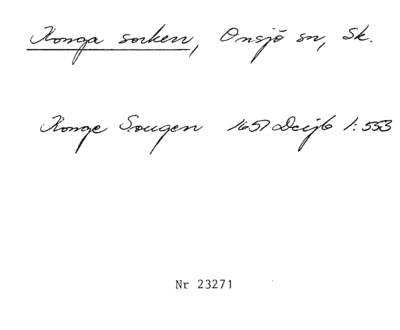 Konga sorken, Onsjö sn, Sk.
Konge Sougen 1657 Dcijb 1:553
Nr 23271